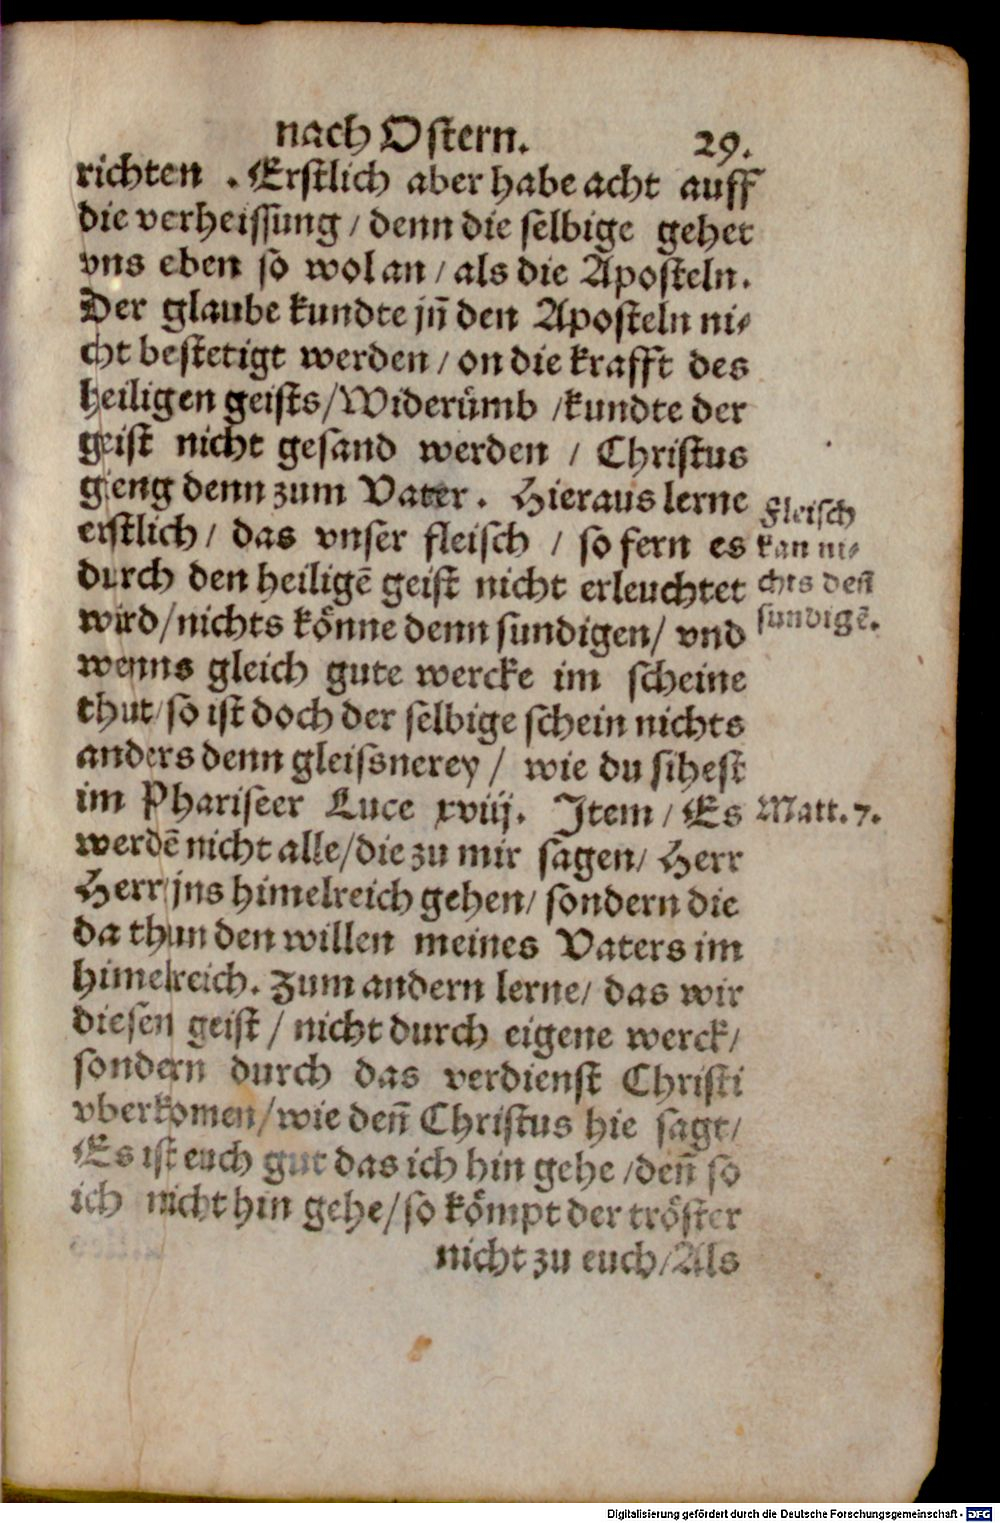 nach Ostern. 29.
richten . Erstlich aber habe acht auff
die verheissung / denn die selbige gehet
vns eben so wol an / als die Aposteln.
Der glaube kundte jn̄ den Aposteln ni⸗
cht bestetigt werden / on die krafft des
heiligen geists / Widerümb / kundte der
geist nicht gesand werden / Christus
gieng denn zum Vater . Hieraus lerne
erstlich / das vnser fleisch / so fern es
durch den heiligē geist nicht erleuchtet
wird / nichts könne denn sundigen / vnd
wenns gleich gute wercke im scheine
thut / so ist doch der selbige schein nichts
anders denn gleissnerey / wie du sihest
im Phariseer Luce xviij. Item / Es
werdē nicht alle / die zu mir sagen / Herr
Herr / jns himelreich gehen / sondern die
da thun den willen meines Vaters im
himelreich. Zum andern lerne / das wir
diesen geist / nicht durch eigene werck /
sondern durch das verdienst Christi
vberkomen / wie den̄ Christus hie sagt /
Es ist euch gut das ich hin gehe / den̄ so
ich nicht hin gehe / so kömpt der tröster
nicht zu euch / Als
Fleisch
kan ni⸗
chts den̄
sundigē.
Matt. 7.
Digitalisierung gefördert durch die Deutsche Forschungsgemeinschaft - DFG